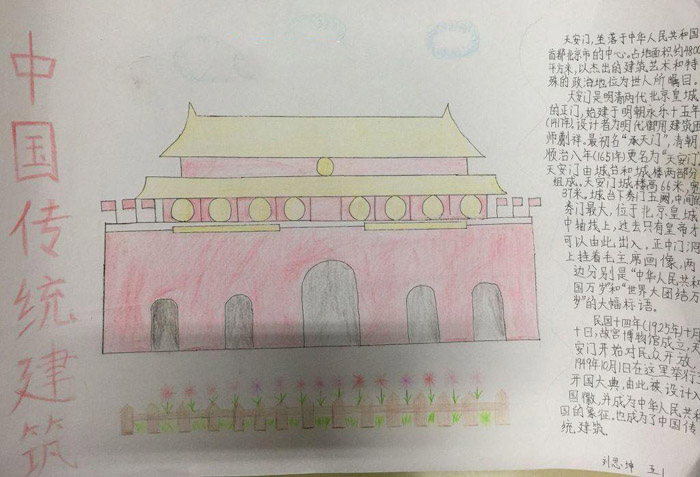 中国传统建筑
天安门,坐落于中华人民共和国
首都北京市的中心。占地面积约4800
平方米,以杰出的建筑艺术和特
殊的政治地位为世人所瞩目。
天安门是明清两代北京皇城
的正门,始建于明朝永乐十五年
(1417年)设计者为明代御用建筑匠
师蒯祥。最初名"承天门",清朝
顺治八年(1651年)更名为"天安门
天安门由城台和城楼两部分
组成。天安门城楼高66米,宽
37米。城台下券门五阙,中间的
券门最大,位于北京皇城
中轴线上,过去只有皇帝才
可以由此出入。正中门洞
上挂着毛主席画像,两
边分别是"中华人民共和
国万岁"和"世界大团结万
岁"的大幅标语。
民国十四年(1925年)十月
十日,故宫博物馆成立,天
安门开始对民众开放。
1949年10月1日在这里举行
开国大典,由此被设计入
国徽,并成为中华人民共和
国的象征。也成为了中国传
统建筑。
刘思坤 五1